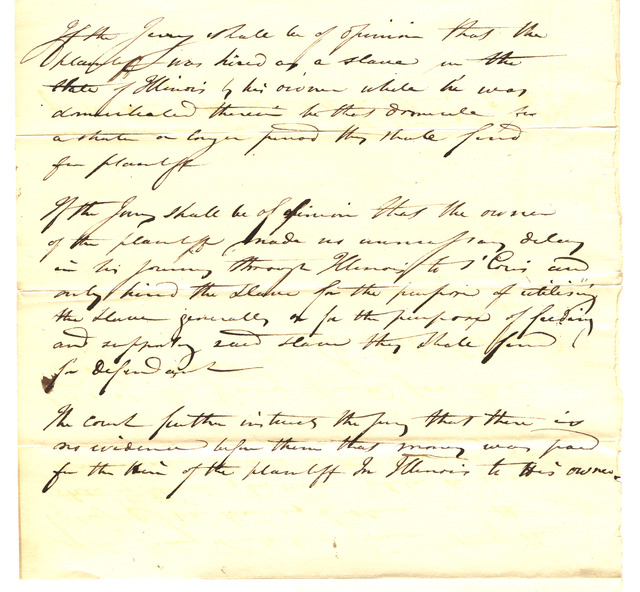 If the Jury shall be of opinion that the
plaintiff was hired as a slave in the
State of Illinois by his owner while he was
domiciliated therein be that domicile for
a short or longer period they shall find
for plaintiff
If the Jury shall be of opinion that the owner
of the plaintiff made no unnecessary delay
in his journey through Illinois to St Louis and
only hired the slave for the purpose of utilising
the slave generally or for the purpose of feeding
and supporting said slave they shall find
for defendant
The court further instructs the jury that there is
no evidence before them that money was paid
for the hire of the plaintiff In Illinois to His owner